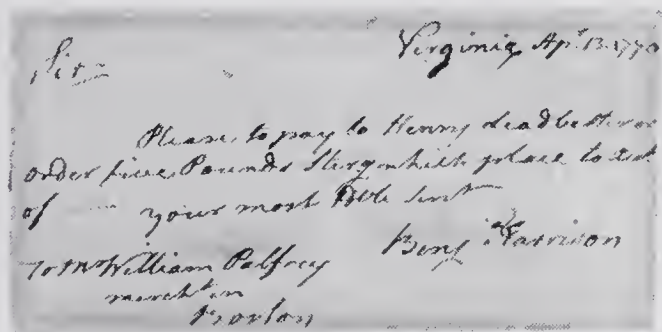 Virginia Apl. 13. 1770
Sir
Please to pay to Henry Leadbetter or
order five Pounds Sterg which place to acct
of your most Oble Servt
Benj Harrison
To Mr William Palfrey
mercht in
Boston